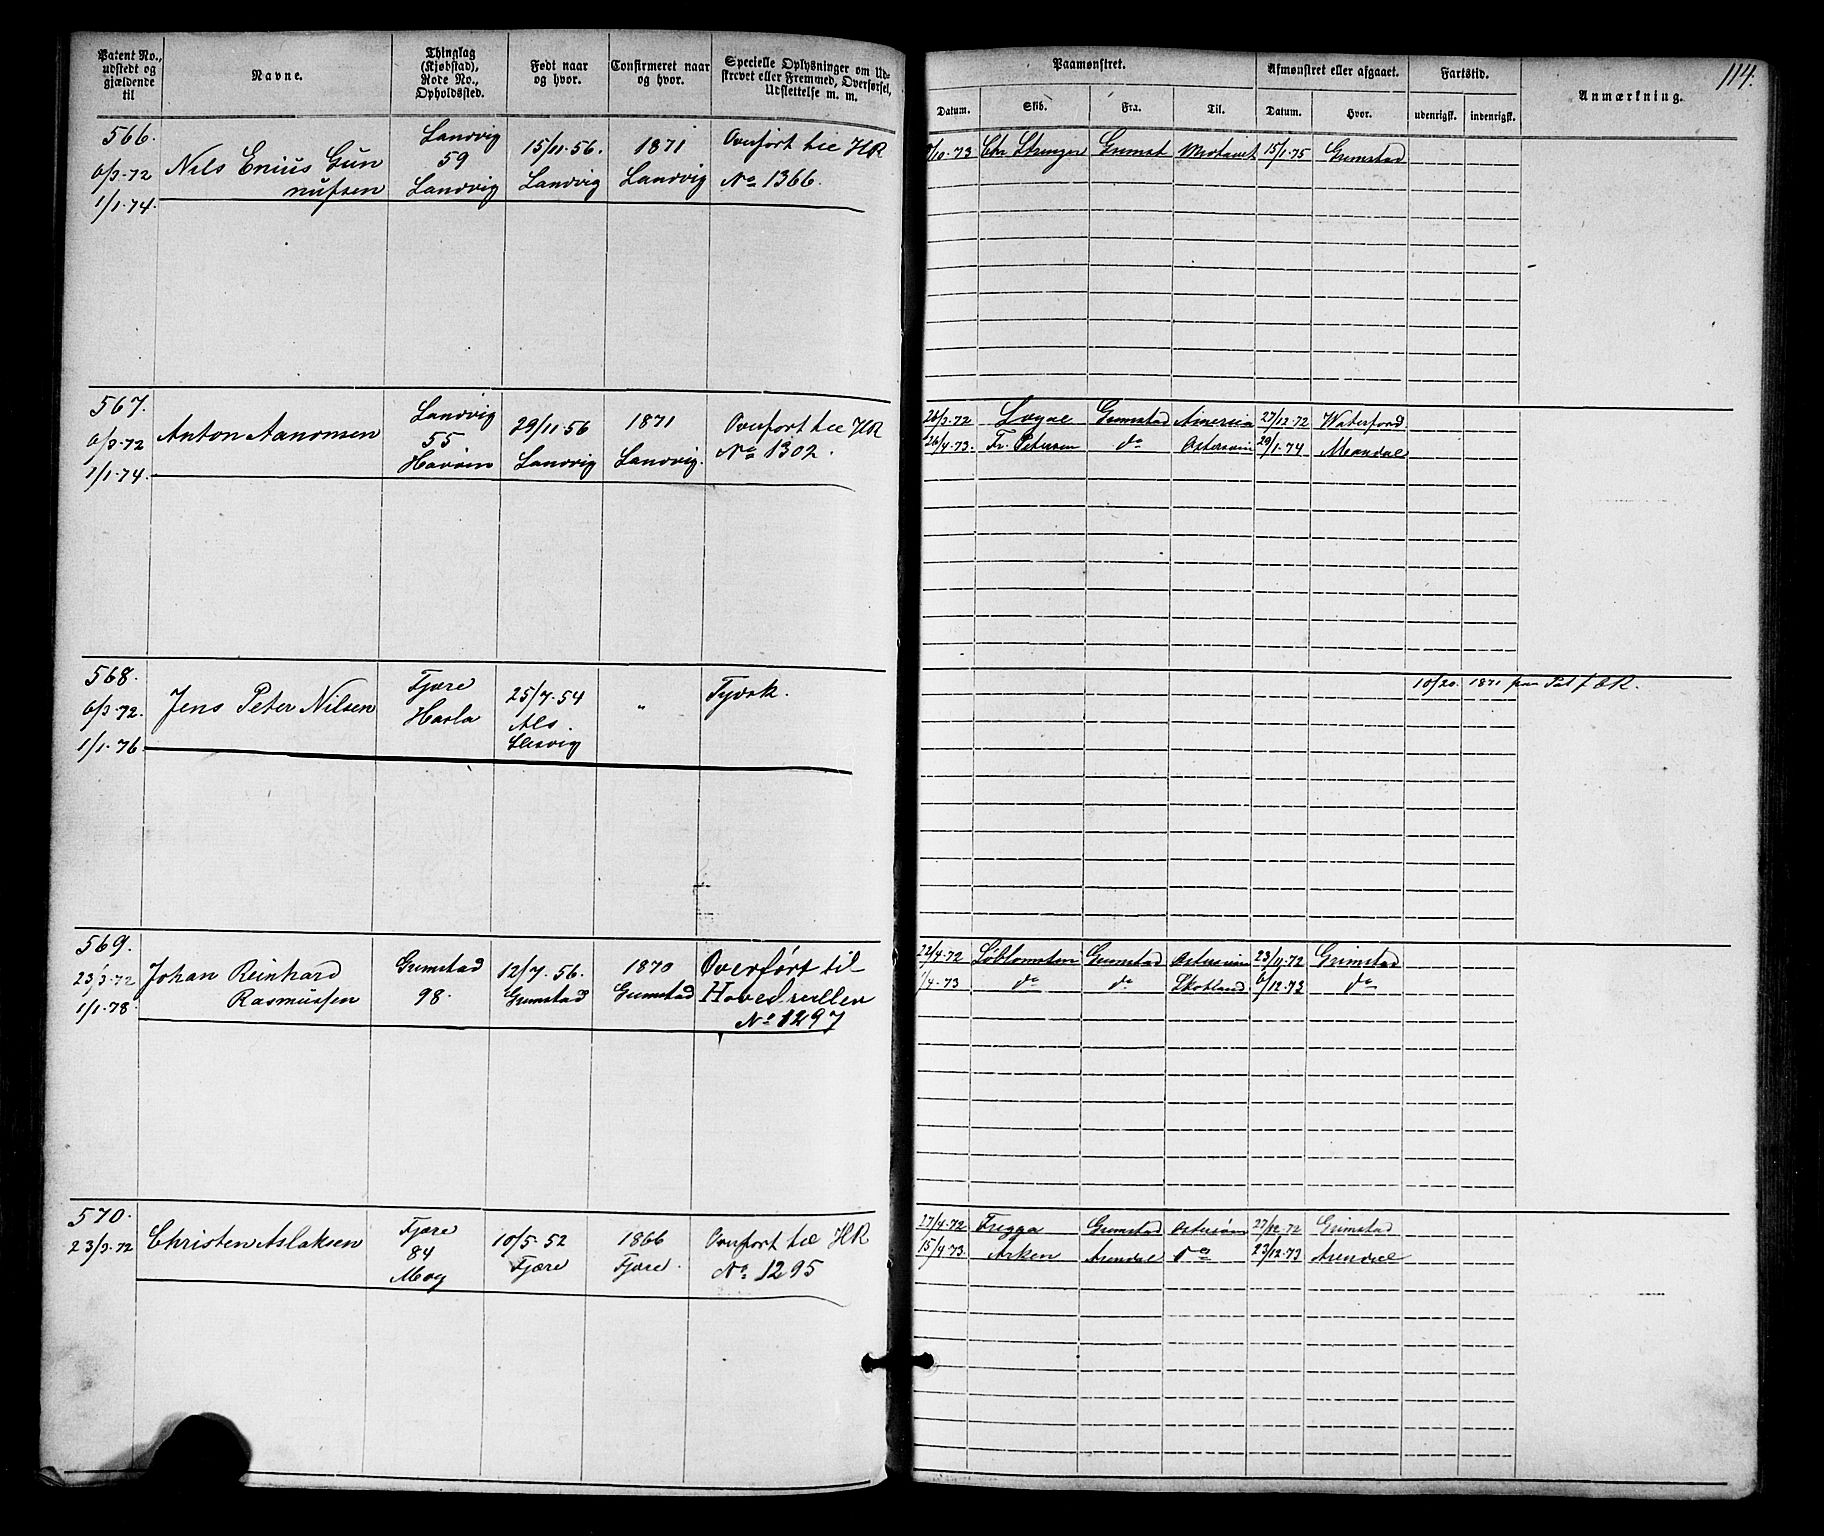 Patent No., udstedt og gjældende til
Navne.
Thinglag (Kjøbstad), Rode No., Opholdssted.
Født naar og hvor.
Confirmeret naar og hvor.
Specielle Oplysninger om Udskrevet eller Fremmed, Overførsel, Udslettelse m. m.
Paamønstret.
Datum.
Skib.
Fra.
Til.
Afmønstret eller afgaaet.
Datum.
Hvor.
Fartstid.
udenrigsk.
indenrigsk.
Anmærkning.
114.
566.
6/3-72
1/1-74.
Nils Enius Gun
nufsen
Landvig
59
Landvig
15/11-56.
Landvig
1871
Landvig
Overført til HR
No 1366.
/10-73 Chr Grimst 15/1-75 Grimstad
567.
6/3-72
1/1-74.
Anton Aanonsen
Landvig
55
29/11-56
Landvig
1871
Landvig.
Overført til HR
No 1302.
26/3-72 Loyal Grimstad America 27/12-72 Waterford
26/4-73. Fr. Petersen do 29/1-74 Mandal
568.
6/3-72.
1/1-76.
Jens Peter Nilsen
Fjære
Hasla
25/7-54
Als
Slesvig
"
Tydsk.
10/20. 1871
569.
23/3-72
1/1-78.
Johan Reinhard
Rasmussen
Grimstad
98.
12/7. 56.
Grimstad
1870
Grimstad
Overført til
Hovedrullen
No 1297
22/4-72 Grimstad 23/11-72 Grimstad
1/4-73 do do Skotland 6/12-73 do
570.
23/3-72
Christen Aslaksen
Fjære
84
Moy
10/5-52
Fjære
1866
Fjære.
Overført til HR
No 1295
27/4-72 Frigga Grimstad Østersøen 27/12-72 Grimstad
15/4-73. Arken Arendal do 23/12-73 Arendal